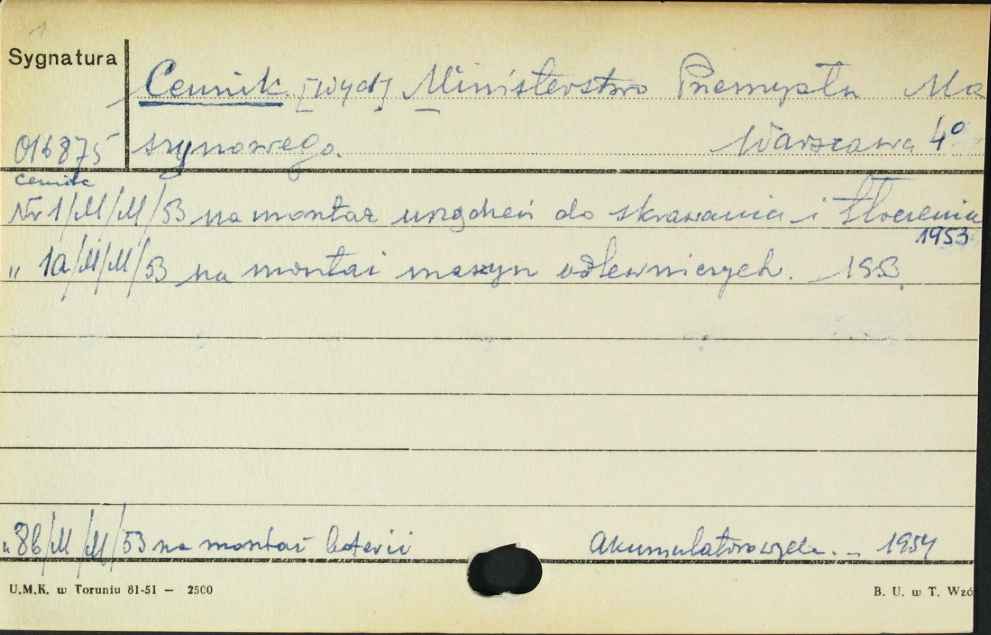 Sygnatura
Cennik [wyd] Ministerstwo Przemysłu Ma
016875 szynowego. Warszawa 4°
Cennik
Nr 1/M/M/53 na montaż urządzeń do skrawania i tłoczenia
1953
" 1a/M/M/53 na montaż maszyn odlewniczych. 1953.
" 8b/M/M/53 na montaż baterii akumulatorowych. - 1954
U.M.K. w Toruniu 81-51 — 2500 B. U. w T. Wzó